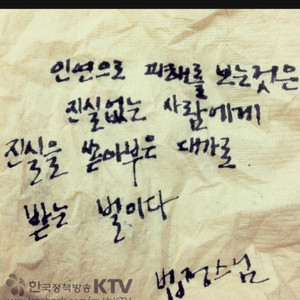 인연으로 피해를 보는것은
진실없는 사람에게
진실을 쏟아부은 대가로
받는 벌이다
법정스님
한국정책방송 KTV